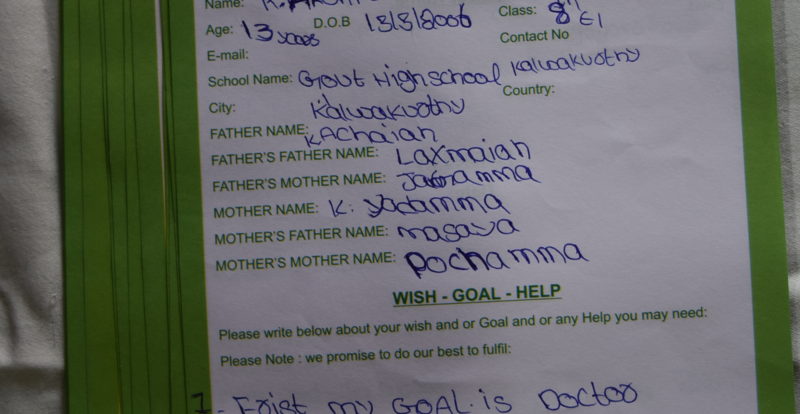 Name: K.
Age: 13 years D.O.B 13/3/2006 Class: 8th E1
E-mail: Contact No
School Name: Govt High school Kalwakuothy
City: Kalwakuothy Country:
FATHER NAME: K Achaiah
FATHER'S FATHER NAME: Laxmaiah
FATHER'S MOTHER NAME:
MOTHER NAME: K. Yadamma
MOTHER'S FATHER NAME: masaya
MOTHER'S MOTHER NAME: pochamma
WISH - GOAL - HELP
Please write below about your wish and or Goal and or any Help you may need:
Please Note : we promise to do our best to fulfil:
1- Frist my GOAL is Doctor